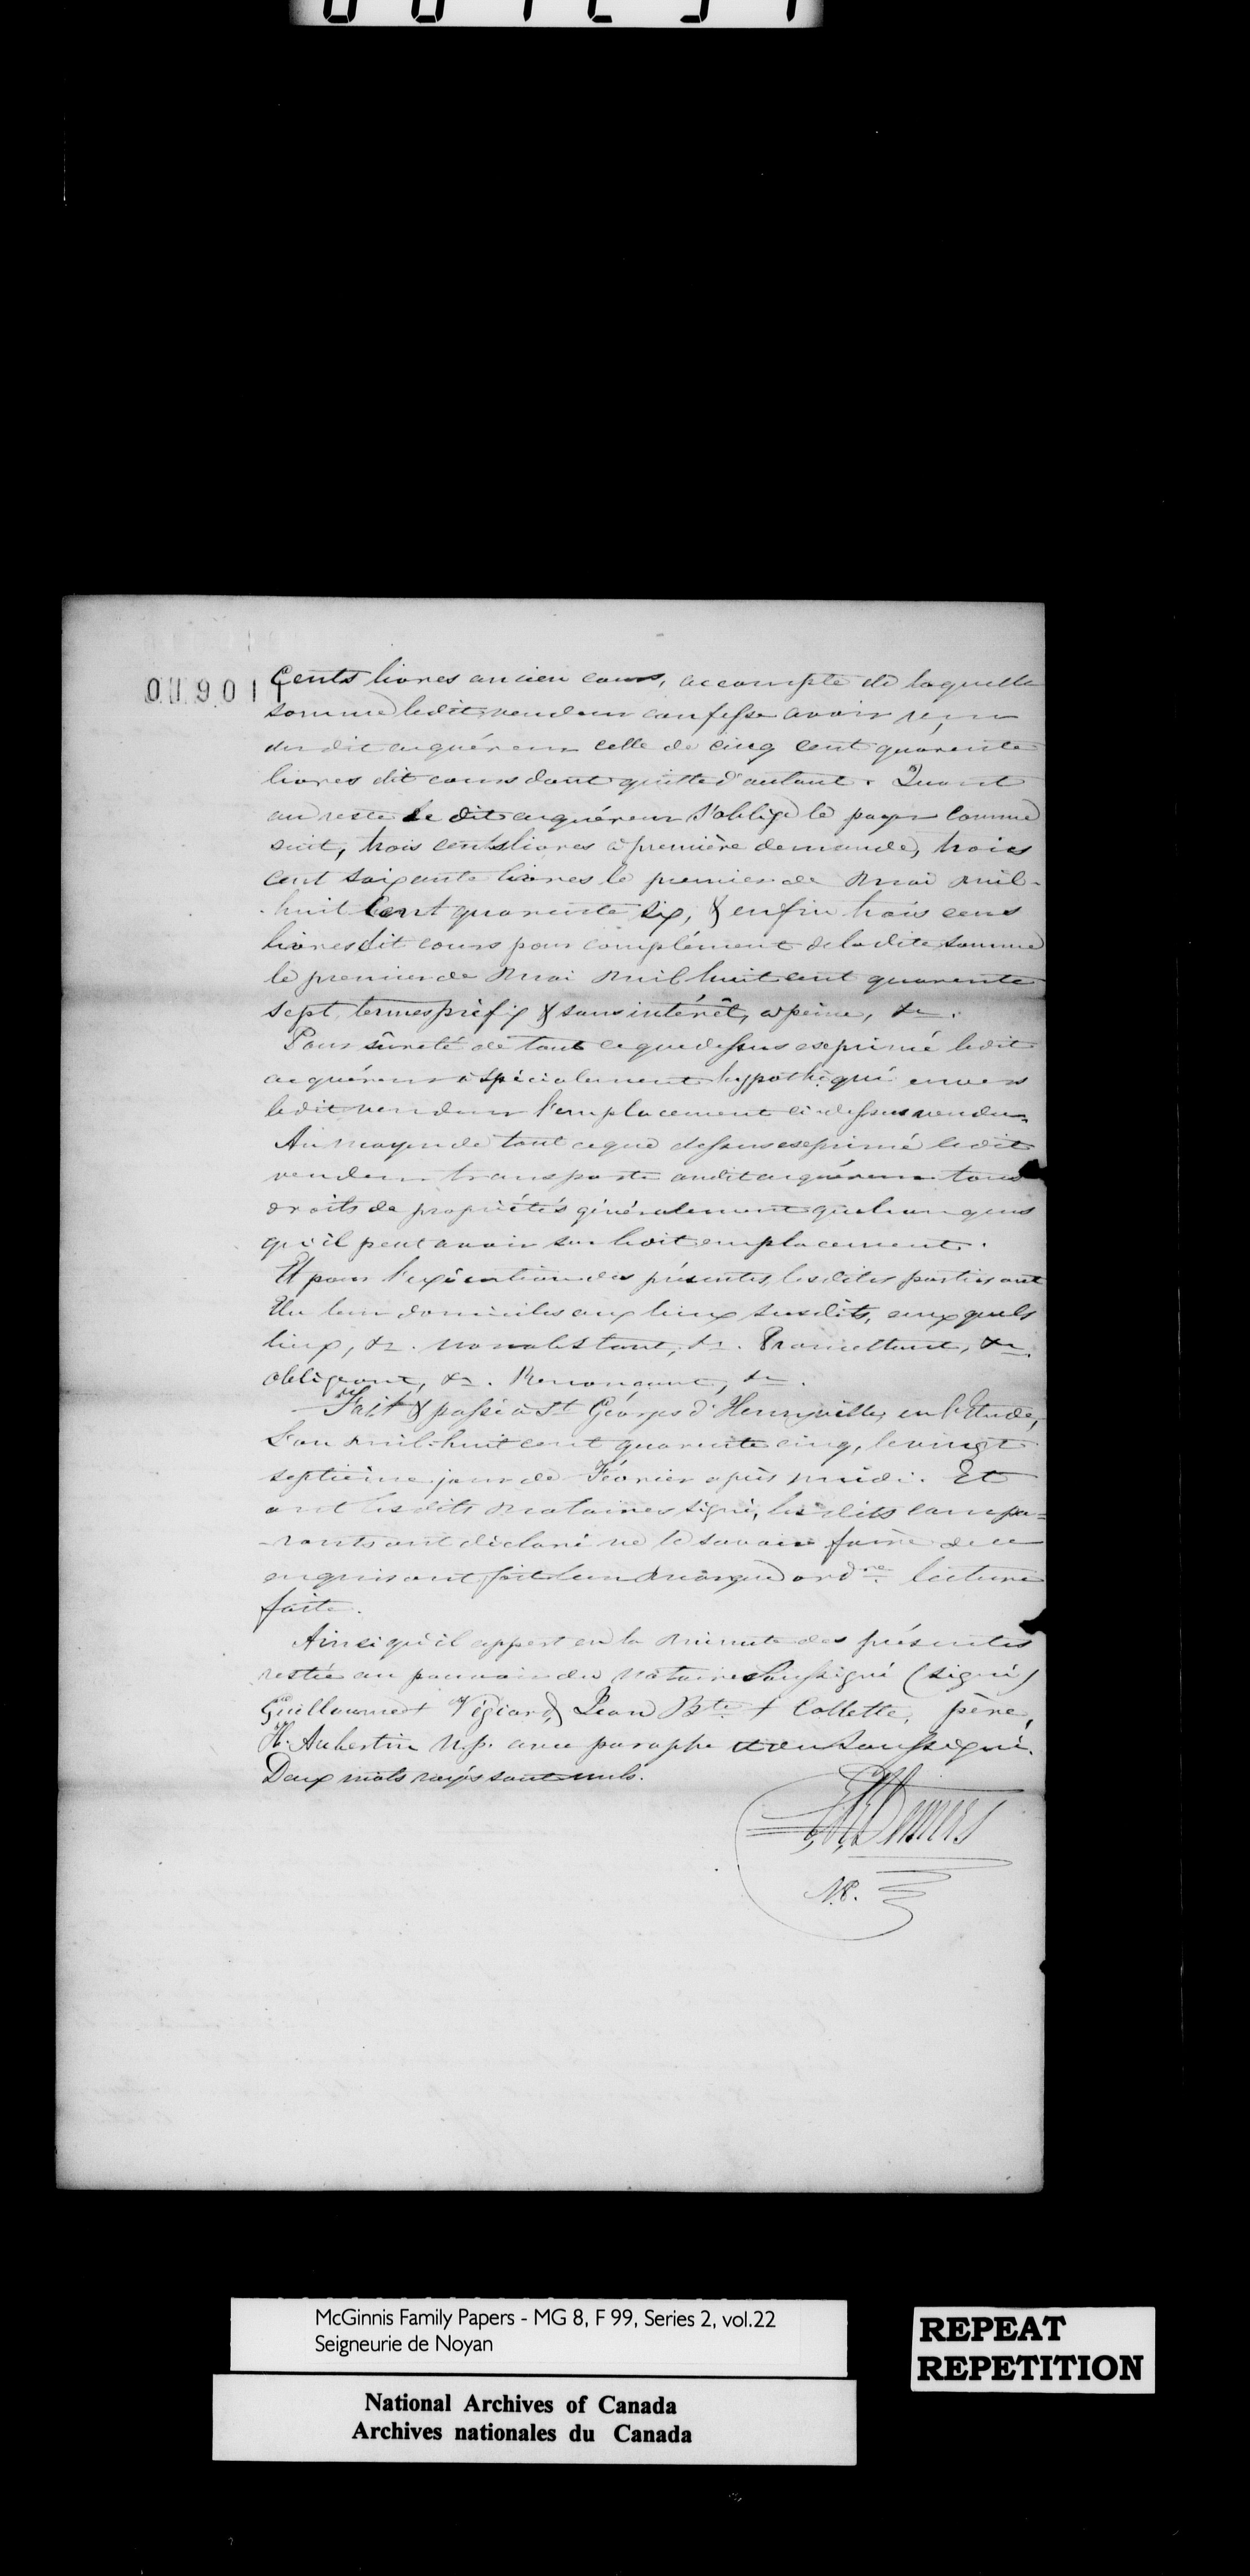 Cents livres ancien cours, accompte de laquelle
somme ledit vendeur confesse avoir reçu
du dit acquéreur celle de cinq cent quarente
livres dit cours dont quitte d'autant. Quant
au reste le dit acquéreur s'oblige le payer comme
suit, trois cents livres à première demande, trois
cent soixante livres le premier de Mai mil-
huit Cent quarente six, & enfin trois cens
livres dit cours pour complément de ladite somme
le premier de Mai Mil huit cent quarente
sept, termes préfix & sans intérêt, à peine, &c.
Pour sûreté de tout ce que dessus exprimé ledit
acquéreur a spécialement hypothéqué envers
ledit vendeur l'emplacement ci dessus vendu.
Au moyen de tout ce que dessus exprimé ledit
vendeur transporte audit acquéreur tous
droits de propriétés généralement quelconques
qu'il peut avoir sur ledit emplacement.
Et pour l'exécution des présentes, lesdites parties ont
élu leur domiciles aux lieux susdits, auxquels
lieux, &c. Nonobstant, &c. Promettant, &c.
obligeant, &c. Renonçant, &c.
Fait & passé à St Georges d'Henryville, en l'Etude,
L'an mil-huit cent quarente cinq, le vingt
septième jour de Février après midi. Et
ont lesdits Notaires signé, lesdits compa=
-rants ont déclaré ne le savoir faire de ce
enquis ont fait leur marque ordre. lecture
faite.
Ainsi qu'il appert en la Minute des présentes
restée au pouvoir du Notaire Soussigné (signé)
Guillaume + Végiard, Jean Bte + Collette, père,
H. Aubertin N.p. avec paraphe et du Soussigné.
Deux mots rayés sont nuls.
Demers
N.P.
McGinnis Family Papers - MG 8, F 99, Series 2, vol.22
Seigneurie de Noyan
REPEAT
REPETITION
National Archives of Canada
Archives nationales du Canada